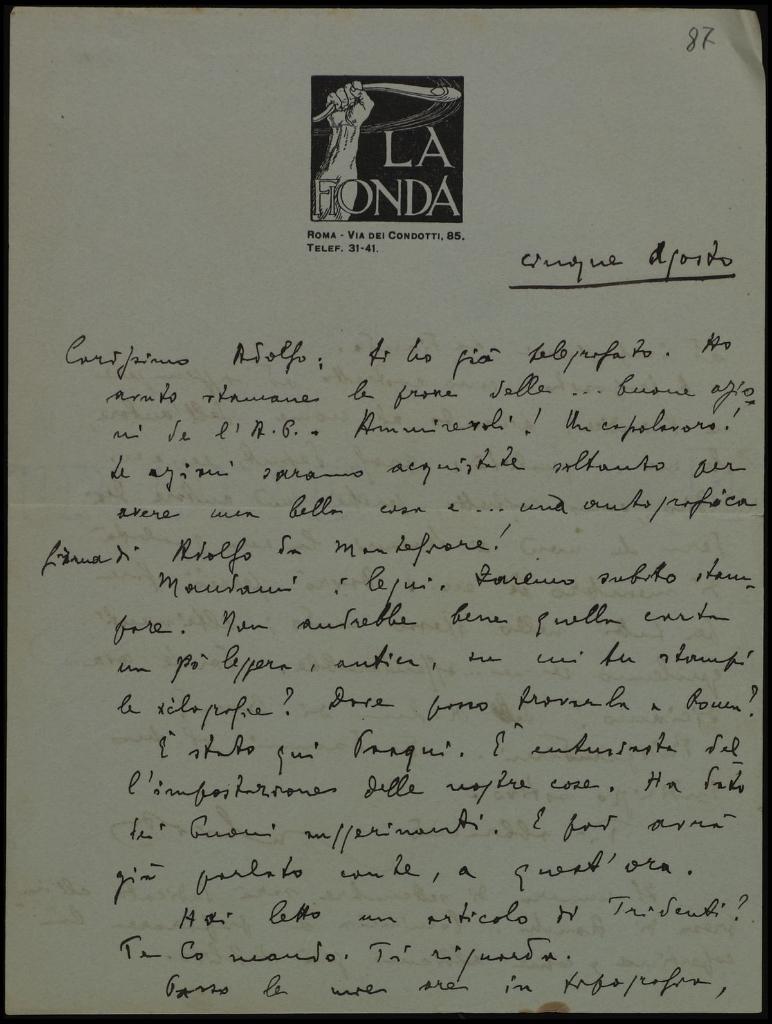 87
LA
FIONDA
ROMA - VIA DEI CONDOTTI, 85.
TELEF. 31-41.
cinque Agosto
Carissimo Adolfo: ti ho già telegrafato. Ho
avuto stamane le prove delle ... buone azio-
ni de l'A.B. Ammirevoli! Un capolavoro!
Le azioni saranno acquistate soltanto per
avere una bella cosa e ... una autografica
firma di Adolfo De Montefiore!
Mandami i legni. Faremo subito stam-
pare. Non andrebbe bene quella carta
un pò leggera, antica, su cui tu stampi
le xilografie? Dove posso trovarla a Roma?
È stato qui . È entusiasta del
l'impostazione delle nostre cose. Ha dato
dei buoni suggerimenti. E poi avrà
già parlato con te, a quest'ora.
Hai letto un articolo di Tridenti?
Te lo mando. Ti riguarda.
Passo le mie ore in tipografia,